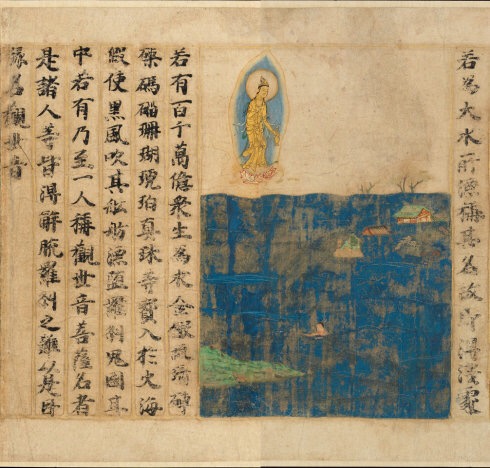 若為大水所漂稱其名號即得淺處
若有百千萬億衆生為求金銀琉璃硨
磲碼碯珊瑚琥珀真珠等寶入於大海
假使黑風吹其舩舫漂墮羅剎鬼國其
中若有乃至一人稱觀世音菩薩名者
是諸人等皆得解脫羅剎之難以是因
緣名觀世音